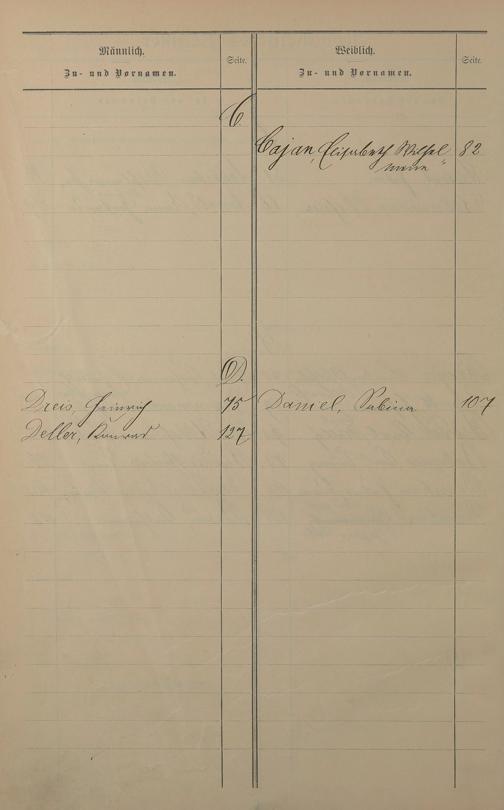 Männlich. Weiblich.
Zu- und Vornamen. Seite. Zu- und Vornamen. Seite.
C.
Cajan, Elisabeth Wilhel- 82
mine
D.
Dreis, Heinrich 75 Daniel, Sabina 107
Deller, Konrad 127